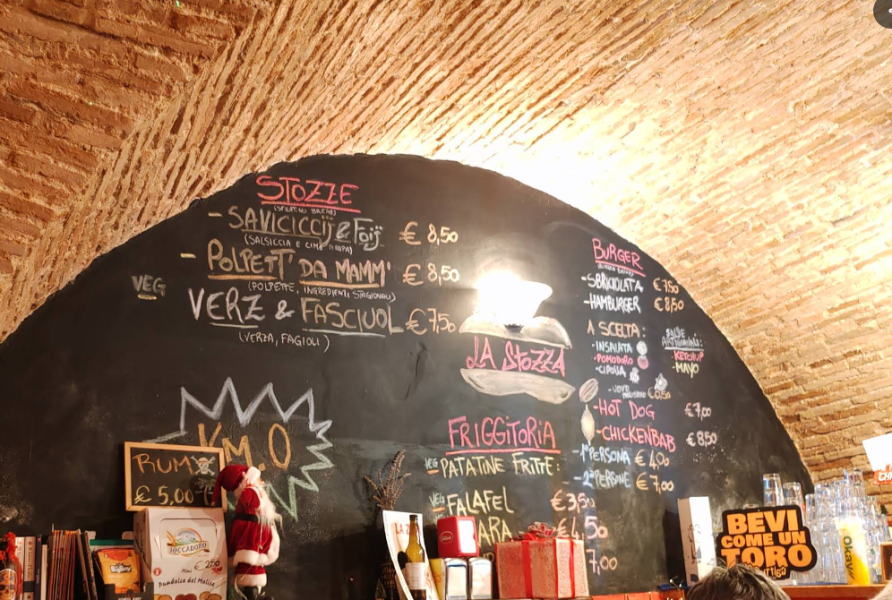 STOZZE
- SAVICICCIJ & FOIJ € 8,50
- POLPETT' DA MAMM' € 8,50
(POLPETTE, INGREDIENTI STAGIONALI)
VEG
VERZ & FASCIUOL € 7,50
(VERZA, FAGIOLI)
LA STOZZA
KM.0
RUM
€ 5,00
FRIGGITORIA
VEG PATATINE FRITTE:
- 1ª PERSONA € 4,00
- 2ª PERSONE € 7,00
VEG FALAFEL €3,50
€4,50
7,00
BURGER
- SBRICIOLATA € 7,50
- HAMBURGER € 8,50
A SCELTA:
- INSALATA
- POMODORO
- CIPOLLA
SALSE
ARTIGIANALI:
- KETCHUP
- MAYO
€ 0,50
- HOT DOG € 7,00
- CHICKENBAB € 8,50
BEVI
COME UN
TORO
Okay